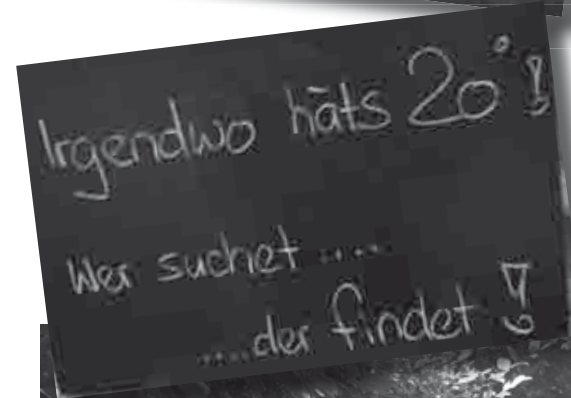 Irgendwo häts 20°!
Wer suchet .....
....der findet !